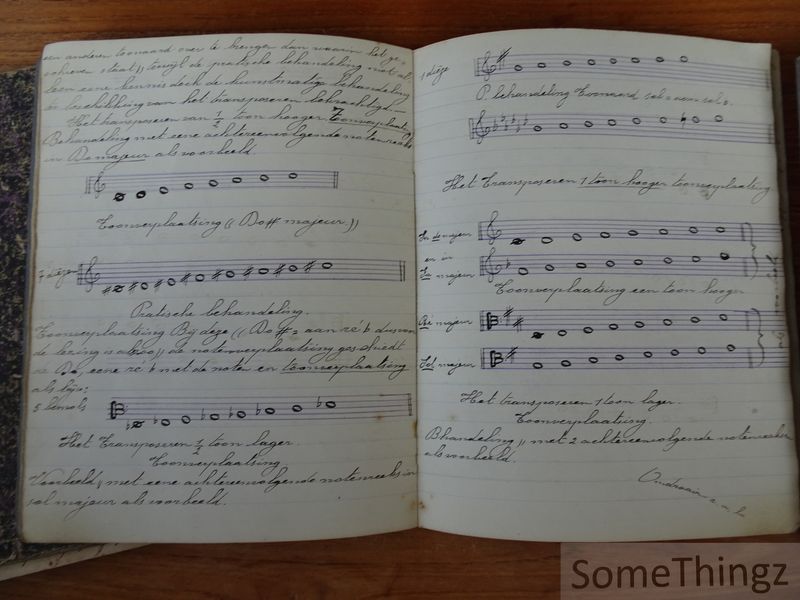 een anderen toonaard over te brengen dan waarin het ge-
schreven staat,, terwijl de pratische behandeling niet al
leen eene kennis doch de kunstmatige behandeling
en beschikking van het transposeren betracht
Het transposeren van 1/2 toon hooger toonverplaats
Behandeling met eene achtereenvolgende notenreeks
in Do majeur als voorbeeld.
Toonverplaatsing (( Do# majeur ))
7 dièzen
Pratische behandeling.
Toonverplaatsing Bij deze (( Do# = aan ré b dus van
de lezing is alzoo)) de notenverplaatsing geschiedt
de Do, eene ré b met de noten en toonverplaatsing
als bije:
5 bemols
Het Transposeren 1/2 toon lager.
Toonverplaatsing
Voorbeeld,, met eene achtereenvolgende notenreeks in
sol majeur als voorbeeld.
1 dièze
P. behandeling Toonaard
Het Transposeren 1 toon hooger toonverplaatsing
In do majeur
en in
majeur
Toonverplaatsing een toon hooger
Ré majeur
Sol majeur
Het transposeren 1 toon lager.
Toonverplaatsing.
Bhandeling,, met 2 achtereenvolgende notenreeken
als voorbeeld.
Omdraaien a.u.b.
SomeThingz